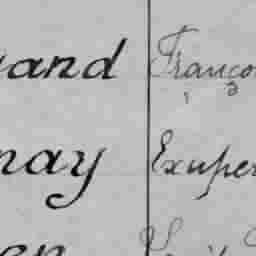 and Franço
nay Exuper
en